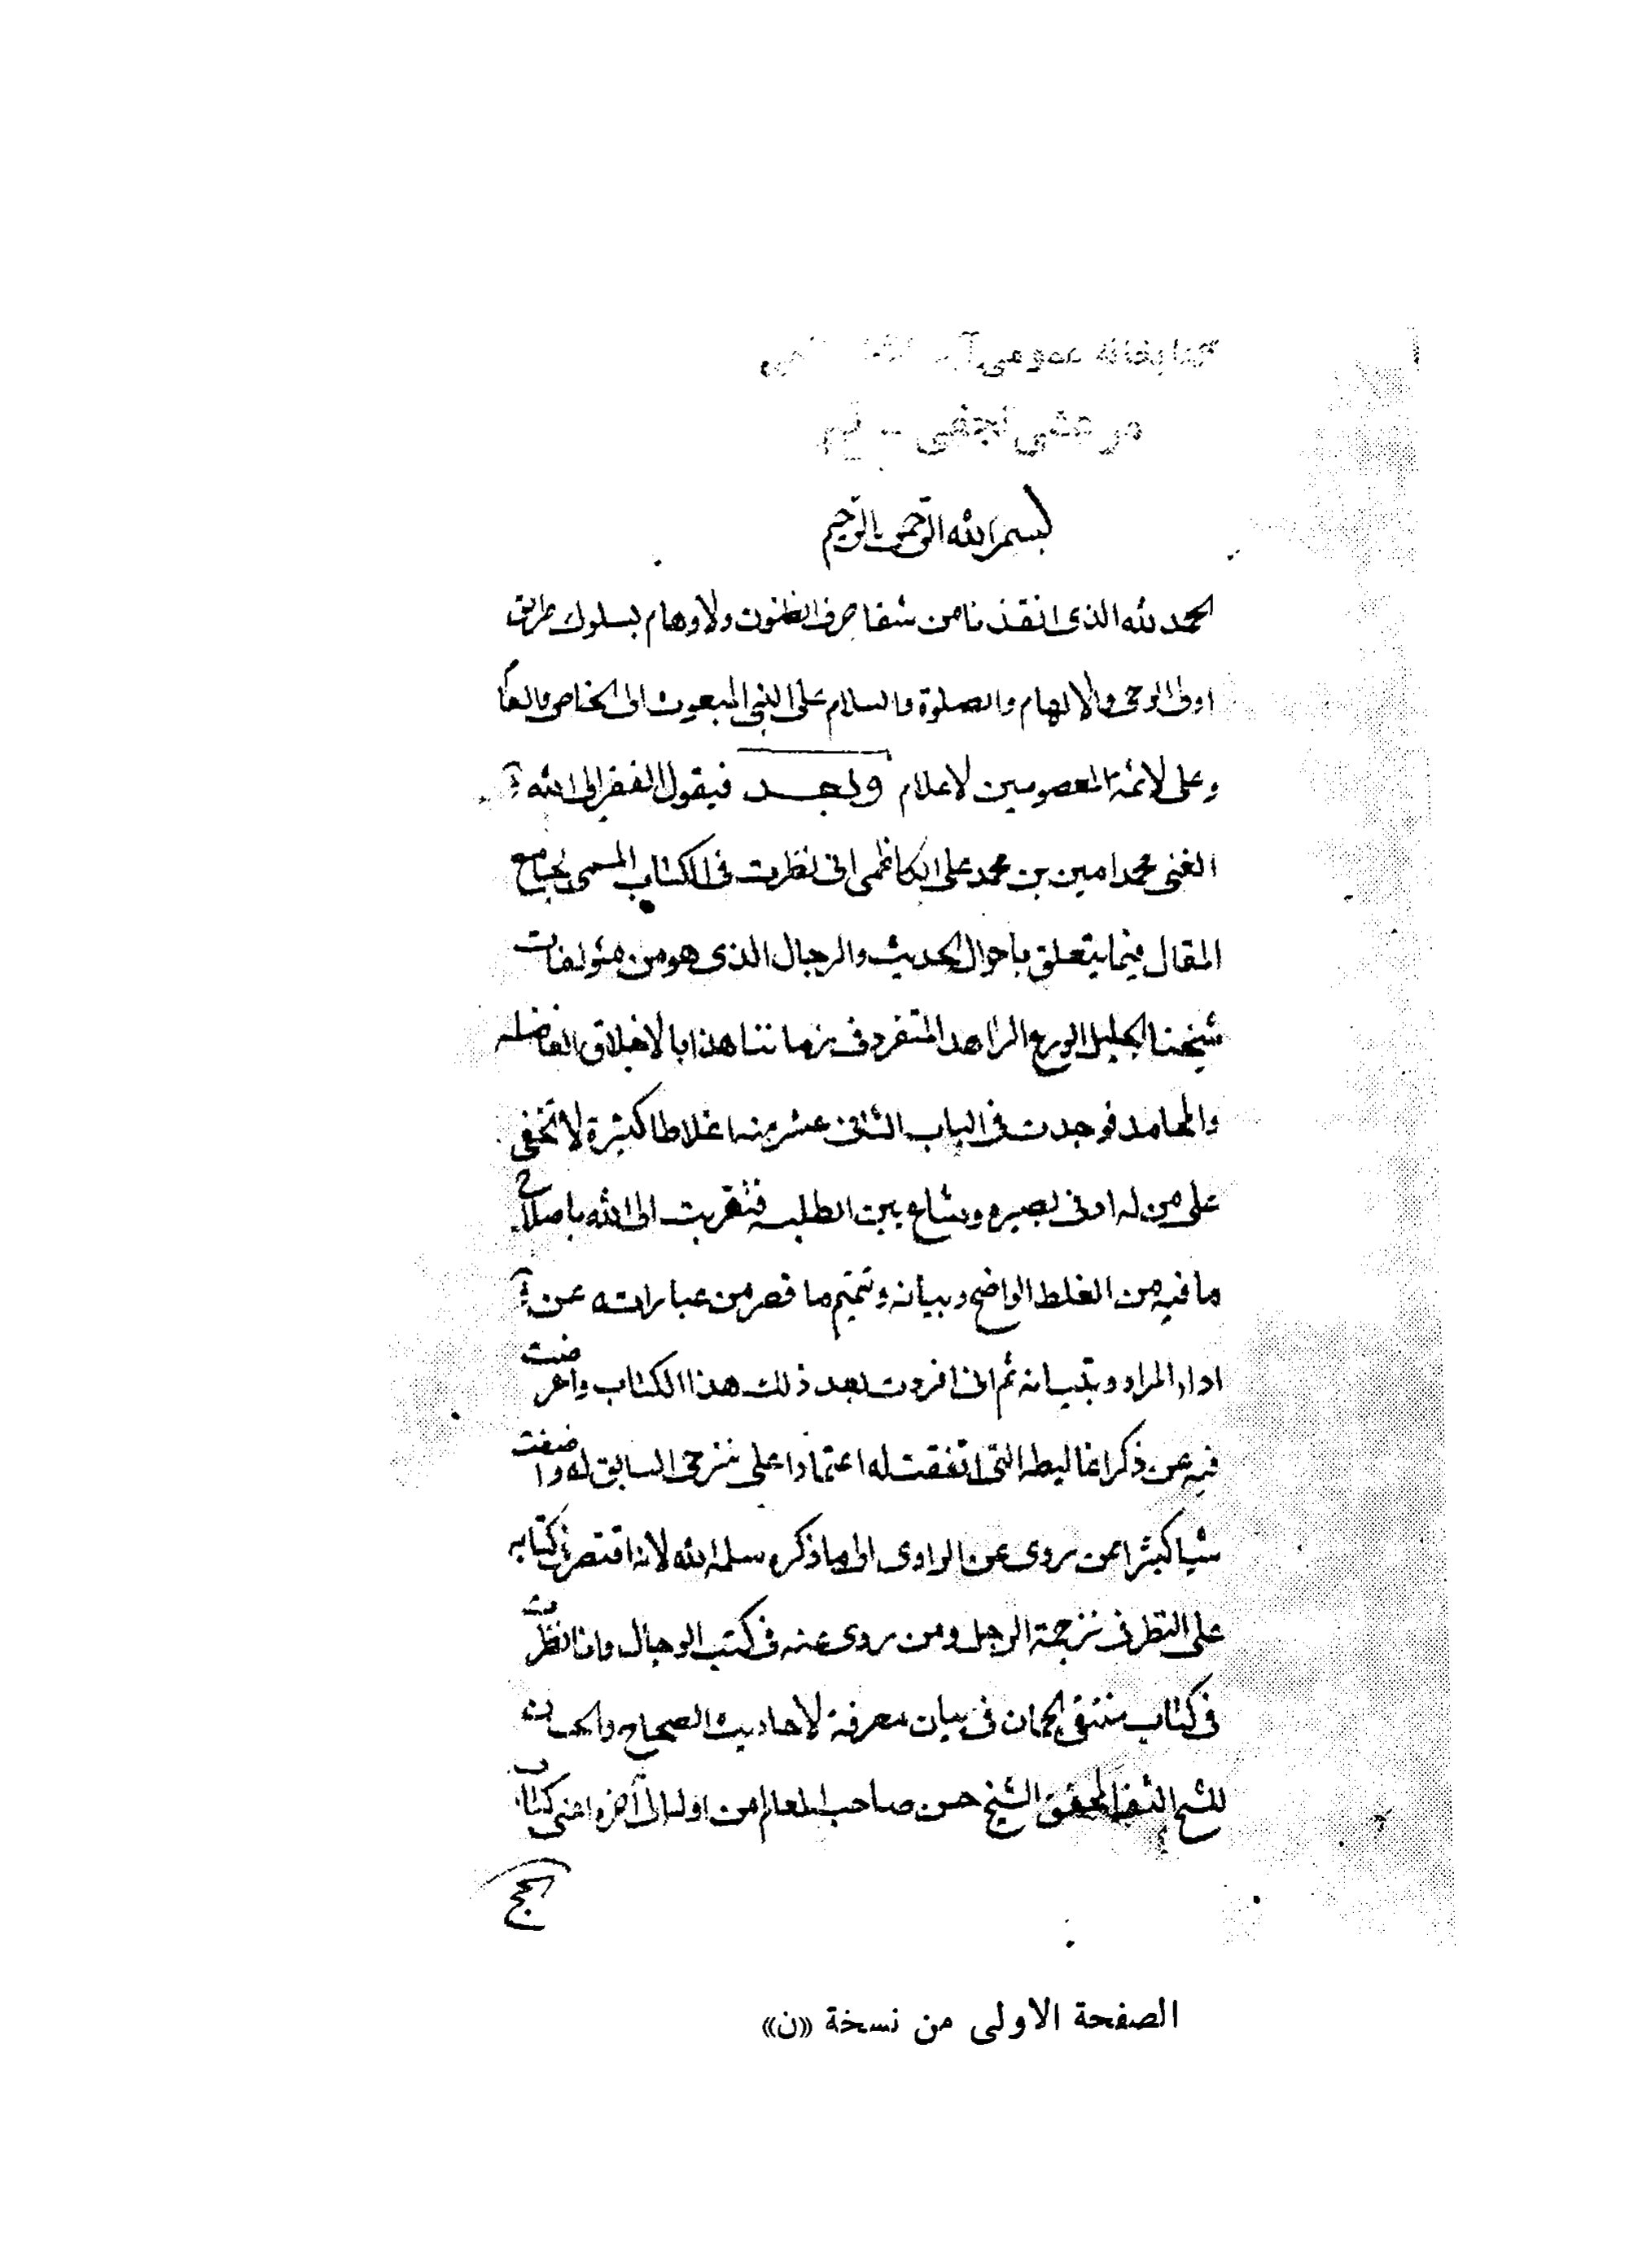 كتابخانه عمومى
مرعشى نجفى - قم
بسم الله الرحمن الرحيم
الحمد لله الذى انقذنا من شفا جرف الظنون ولاوهام بسلوك طريق
اولى الوحى والالهام والصلوة والسلام على النبى المبعوث الى الخاص والعام
وعلى لائمة المعصومين لاعلام وبعد فيقول الفقير الى الله
الغنى محمد امين بن محمد على الكاظمى انى نظرت فى الكتاب المسمى بجامع
المقال فيما يتعلق باحوال الحديث والرجال الذى هو من مؤلفات
شيخنا الجليل الورع الزاهد المتفرد فى زماننا هذا بالاخلاق الفاضله
والمحامد فوجدت فى الباب الثانى عشر منه اغلاطا كثيرة لا تخفى
على من له ادنى بصيره وشاع بين الطلبه فتقربت الى الله باصلاح
ما فيه من الغلط الواضح وبيانه وتتميم ما قصر من عباراته عن
اداء المراد وتبيانه ثم انى افردت بعد ذلك هذا الكتاب واعرضت
فيه عن ذكر اغاليطه التى اتفقت له اعتمادا على شرحى السابق له واضفت
شيا كثيرا ممن روى عن الراوى الى ما ذكره سلمه الله لانه اقتصر فى كتابه
على النظر فى ترجمة الرجل ومن روى عنه فى كتب الرجال وانا نظرت
فى كتاب منتقى الجمان فى بيان معرفة لاحاديث الصحاح والحسان
للشيخ الثقة المحقق الشيخ حسن صاحب المعالم من اوله الى آخره اعنى كتاب
الحج
الصفحة الاولى من نسخة «ن»